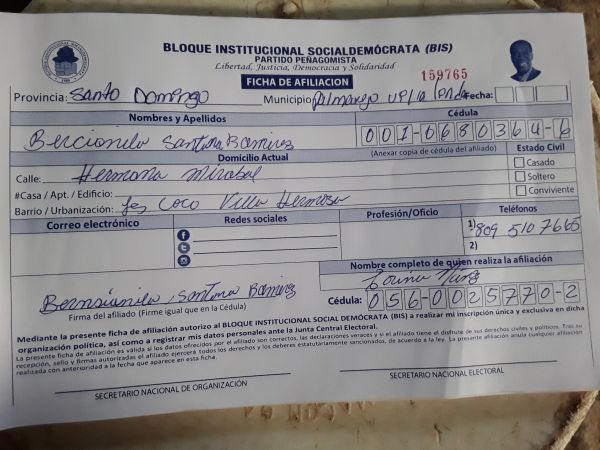 BLOQUE INSTITUCIONAL SOCIALDEMÓCRATA (BIS)
PARTIDO PEÑAGOMISTA
Libertad, Justicia, Democracia y Solidaridad
FICHA DE AFILIACION
159765
Provincia: Santo Domingo Municipio: Palmarejo Fecha:
Nombres y Apellidos Cédula
Santana Ramirez 001-0680364-6
Domicilio Actual (Anexar copia de cédula del afiliado) Estado Civil
Calle: Hermana Mirabal Casado
#Casa / Apt. / Edificio: Soltero
Barrio / Urbanización: Coco Villa Hermosa Conviviente
Correo electrónico Redes sociales Profesión/Oficio Teléfonos
1) 809 510 7665
2)
Nombre completo de quien realiza la afiliación
Santana Ramirez
Firma del afiliado (Firme igual que en la Cédula) Cédula: 056-0025770-2
Mediante la presente ficha de afiliación autorizo al BLOQUE INSTITUCIONAL SOCIALDEMÓCRATA (BIS) a realizar mi inscripción única y exclusiva en dicha
organización política, así como a registrar mis datos personales ante la Junta Central Electoral.
La presente ficha de afiliación es válida si los datos ofrecidos por el afiliado son correctos, las declaraciones veraces y si el afiliado tiene el disfrute de sus derechos civiles y políticos. Tras su
recepción, sello y firmas autorizadas el afiliado ejercerá todos los derechos y los deberes estatutariamente sancionados, de acuerdo a la ley. La presente afiliación anula cualquier afiliación
realizada con anterioridad a la fecha que aparece en esta ficha.
SECRETARIO NACIONAL DE ORGANIZACIÓN SECRETARIO NACIONAL ELECTORAL